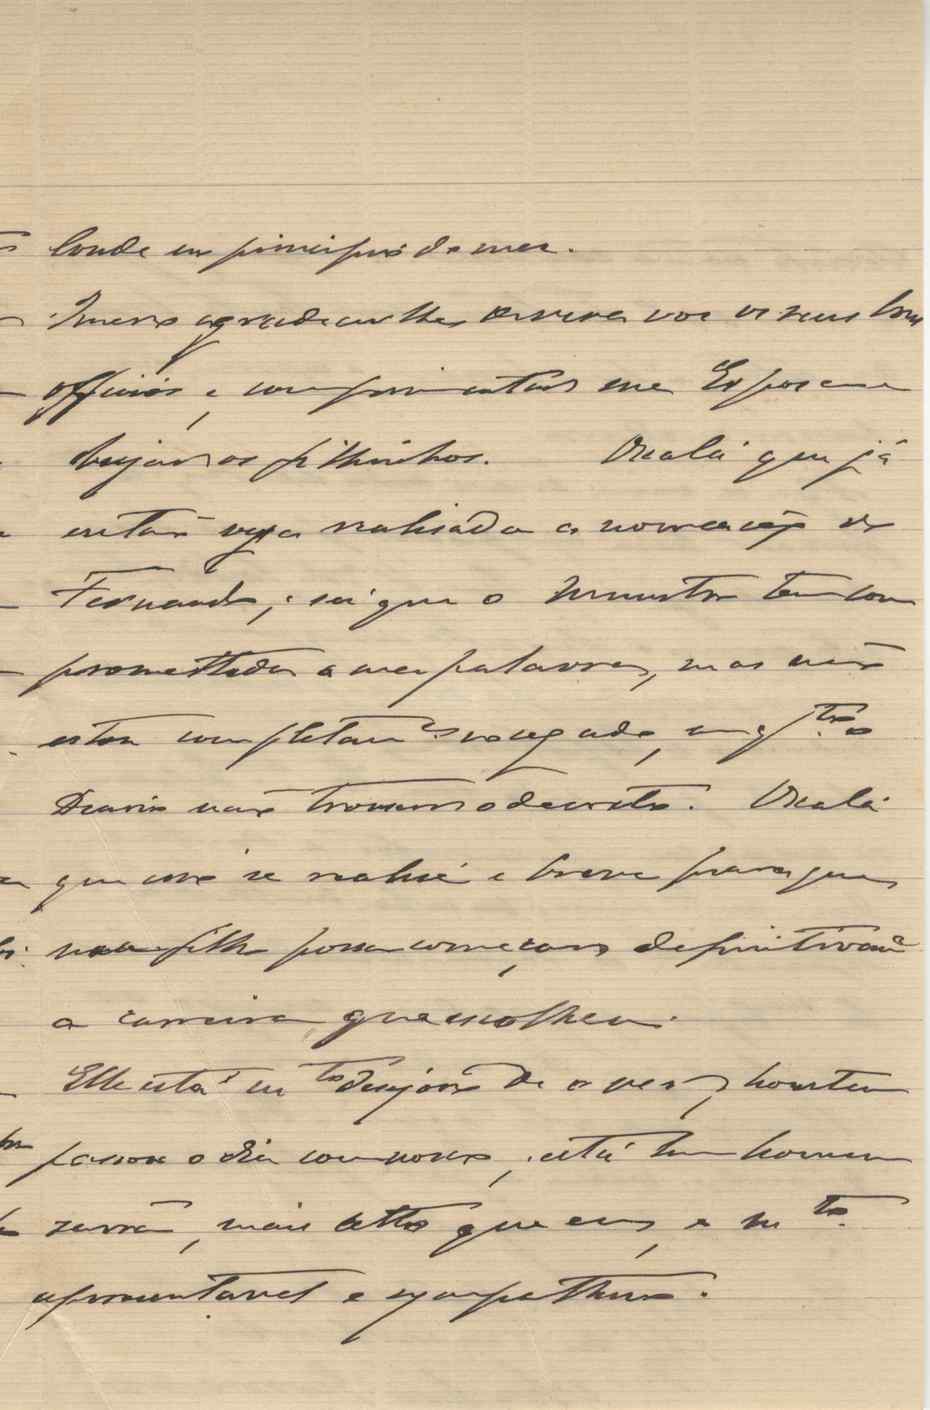 Conde em principios do mez.
Quero agradecer lhes de viva voz os seus bons
officios e comprimentar sua Esposa e
beijar os filhinhos. Oxalá que já
então veja realisada a nomeação do
Fernando; sei que o Ministro tem com
promettida a sua palavra, mas não
estou completam.e socegado, emq.to o
Diario não trouxer o decreto. Oxalá
que isso se realise e breve para que
meu filho possa começar definitivam.e
a carreira que escolheu.
Elle está m.to desejoso de o ver, hontem
passou o dia comnosco, está um homem
, mais alto que eu, e m.to
apresentavel e sympathico.